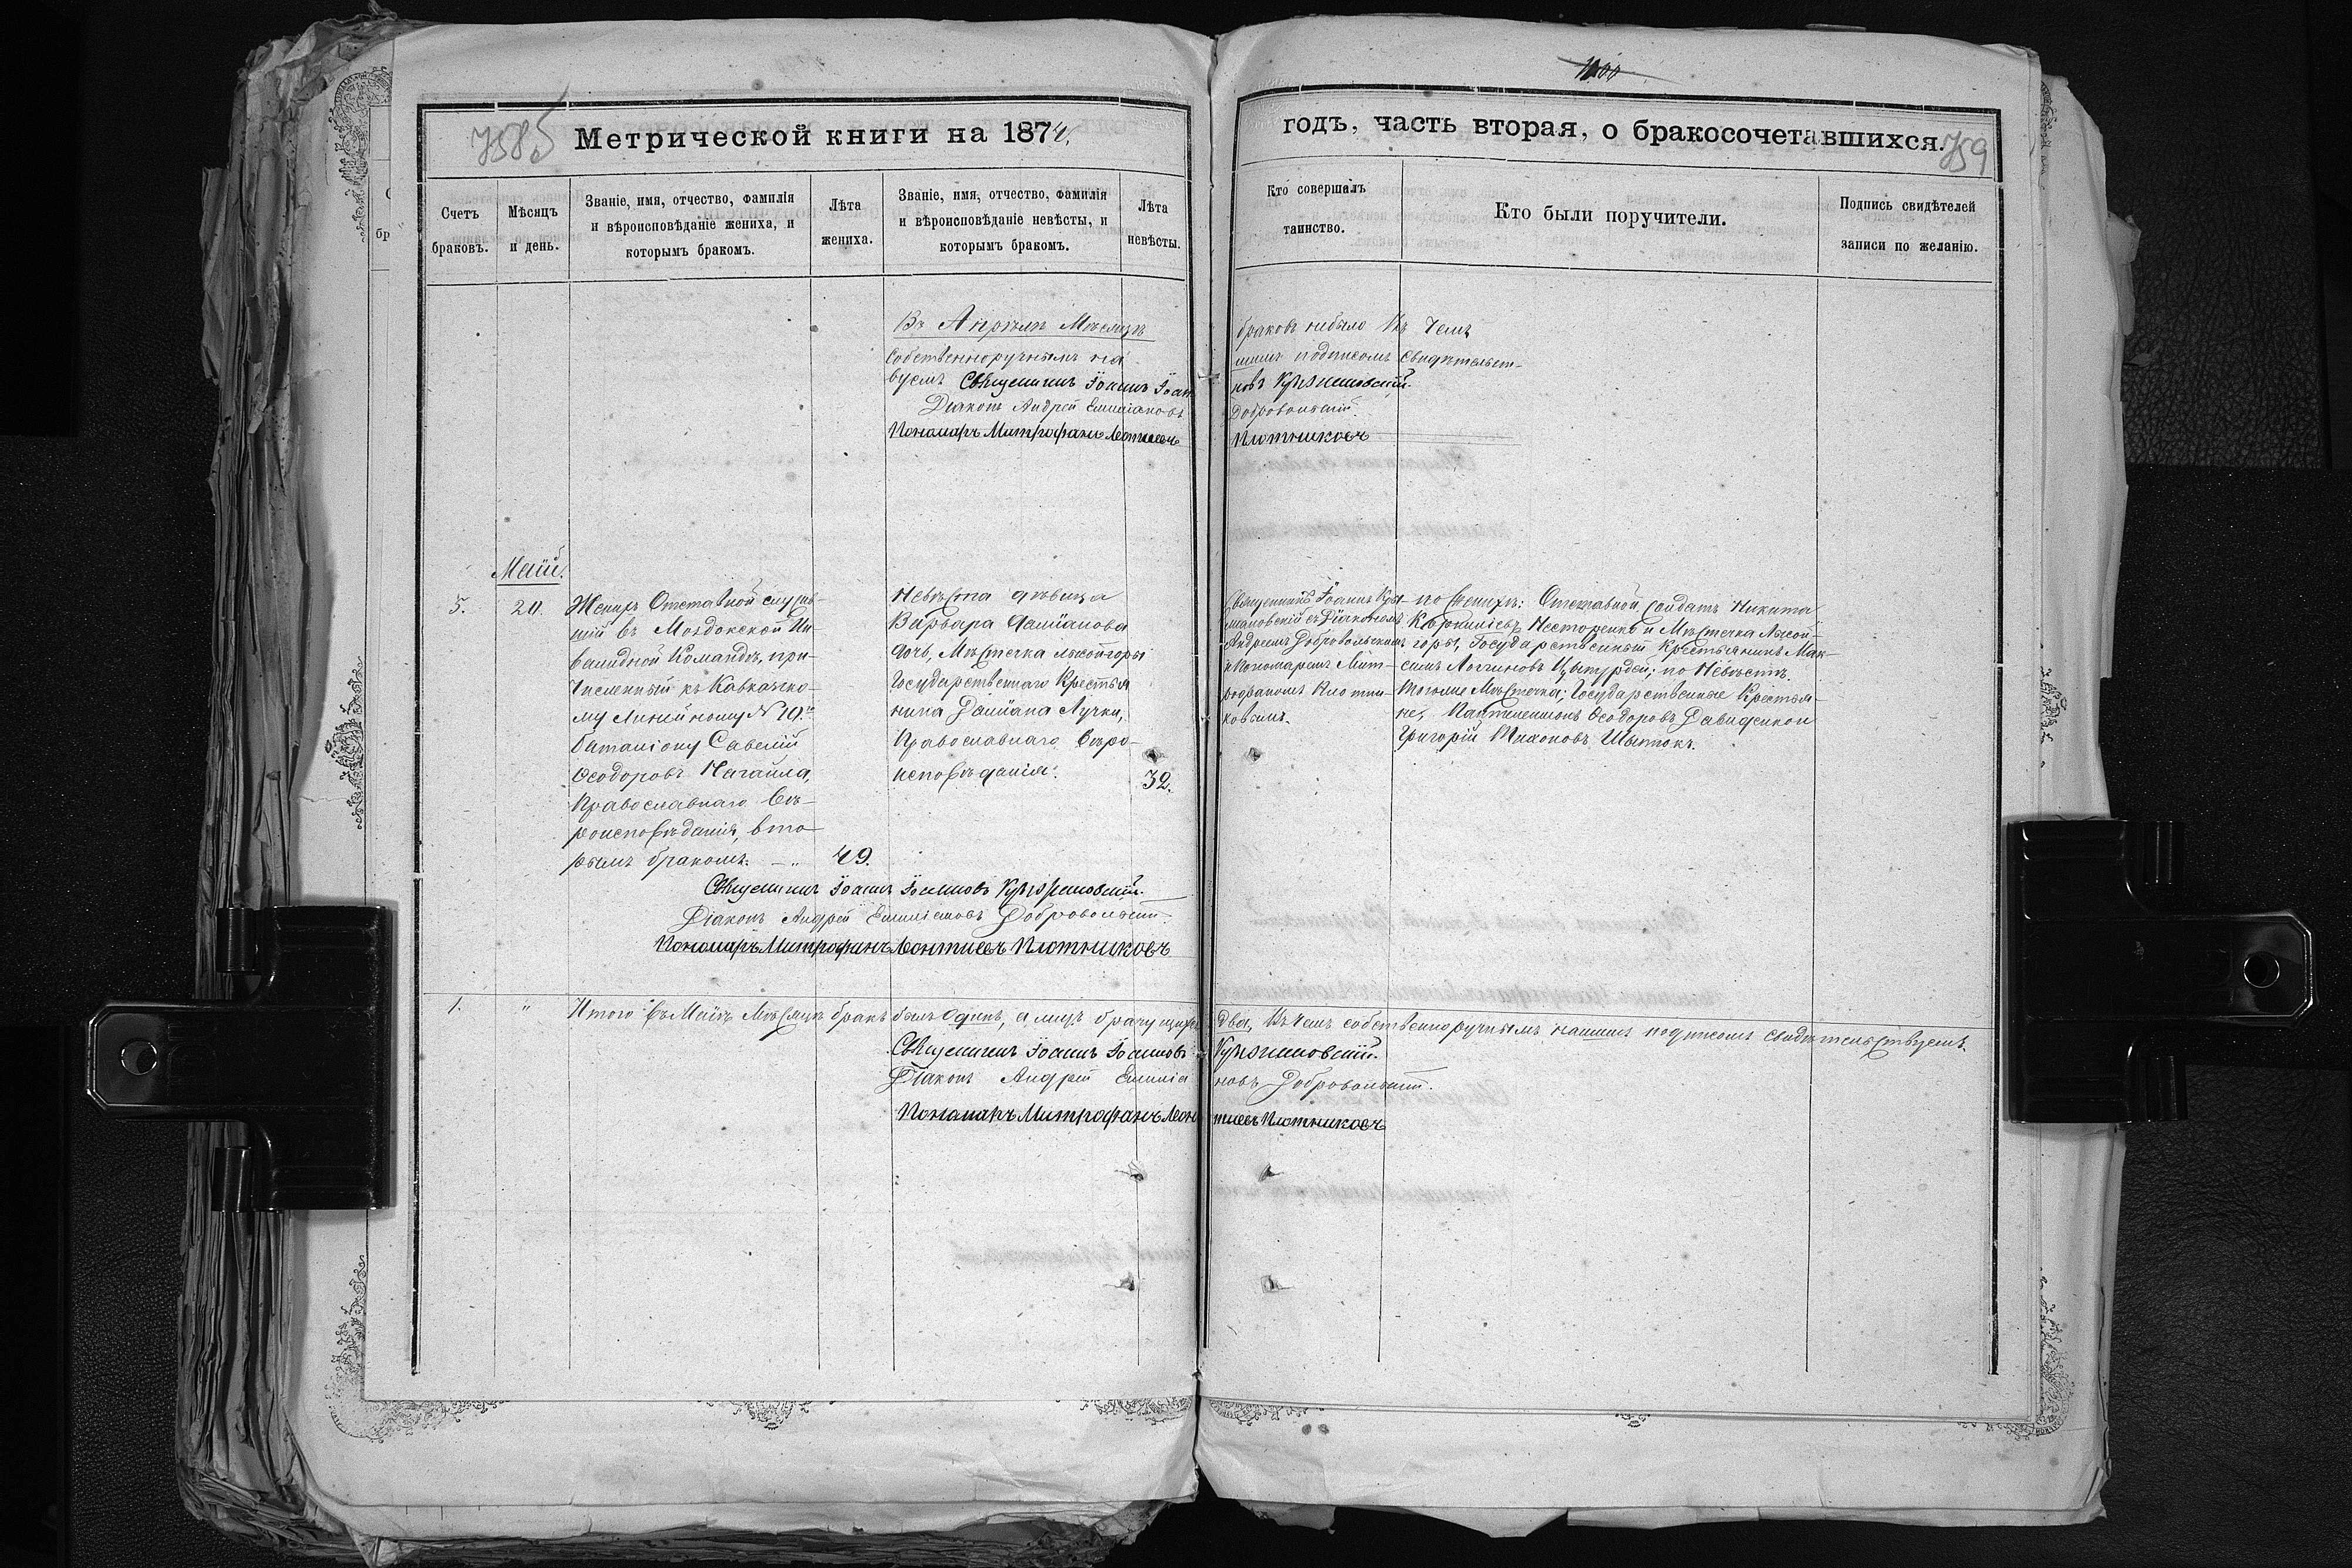 1100
7585
Метрической книги на 1874
годъ, часть вторая, о бракосочетавшихся.
759
Счетъ
браковъ.
Мѣсяцъ
и день.
Званіе, имя, отчество, фамилія
и вѣроисповѣданіе жениха, и
которымъ бракомъ.
Лѣта
жениха.
Званіе, имя, отчество, фамилія
и вѣроисповѣданіе невѣсты, и
которымъ бракомъ.
Лѣта
невѣсты.
Кто совершалъ
таинство.
Кто были поручители.
Подпись свидѣтелей
записи по желанію.
Въ Апрѣлѣ Мѣсяцѣ браковъ небыло Въ Чемъ
собственноручнымъ нашимъ подписомъ Свидѣтельст-
вуемъ Священникъ Іоаннъ
Діаконъ Андрей Емиліановъ Добровольскій.
Пономарь Митрофанъ Леонтиевъ Плотниковъ
Маій.
5.
20.
Женихъ Отставной служив-
шій въ Моздокской Ин-
валидной Командѣ, при-
численный къ Кавказско-
му Линейному № 19.
баталіону Савелій
Ѳеодоровъ Нагайла,
Православнаго Вѣ-
роисповѣданія, вто-
рымъ бракомъ. — „
49.
Невѣста дѣвица
Варвара Даміанова
дочь, Мѣстечка Лысойгоры
Государственнаго Крестья
нина Даміана Лучки,
Православнаго Вѣро-
исповѣданія.
32.
Священникъ Іоаннъ
съ Діакономъ
Андреемъ Добровольскимъ
и Пономаремъ Мит-
рофаномъ Плотни-
ковымъ.
по Женихѣ: Отставной Солдатъ Никита
Корниліевъ Несторенко и Мѣстечка Лысой-
горы, Государственный Крестьянинъ Мак-
симъ Логгиновъ; по Невѣстѣ.
Тогоже Мѣстечка; Государственные Крестья-
не, Пантелеимонъ Ѳеодоровъ Давиденко и
Григорій Тихоновъ
Священникъ Іоаннъ Іоанновъ
Діаконъ Андрей Емиліановъ Добровольскій.
Пономарь Митрофанъ Леонтиевъ Плотниковъ
1.
„
Итого въ Маіѣ Мѣсяцѣ бракъ былъ Одинъ, а лицъ два, Въ Чемъ собственноручнымъ нашимъ подписомъ свидѣтельствуемъ.
Священникъ Іоаннъ Іоанновъ
Діаконъ Андрей Емиліановъ Добровольскій.
Пономарь Митрофанъ Леонтиевъ Плотниковъ